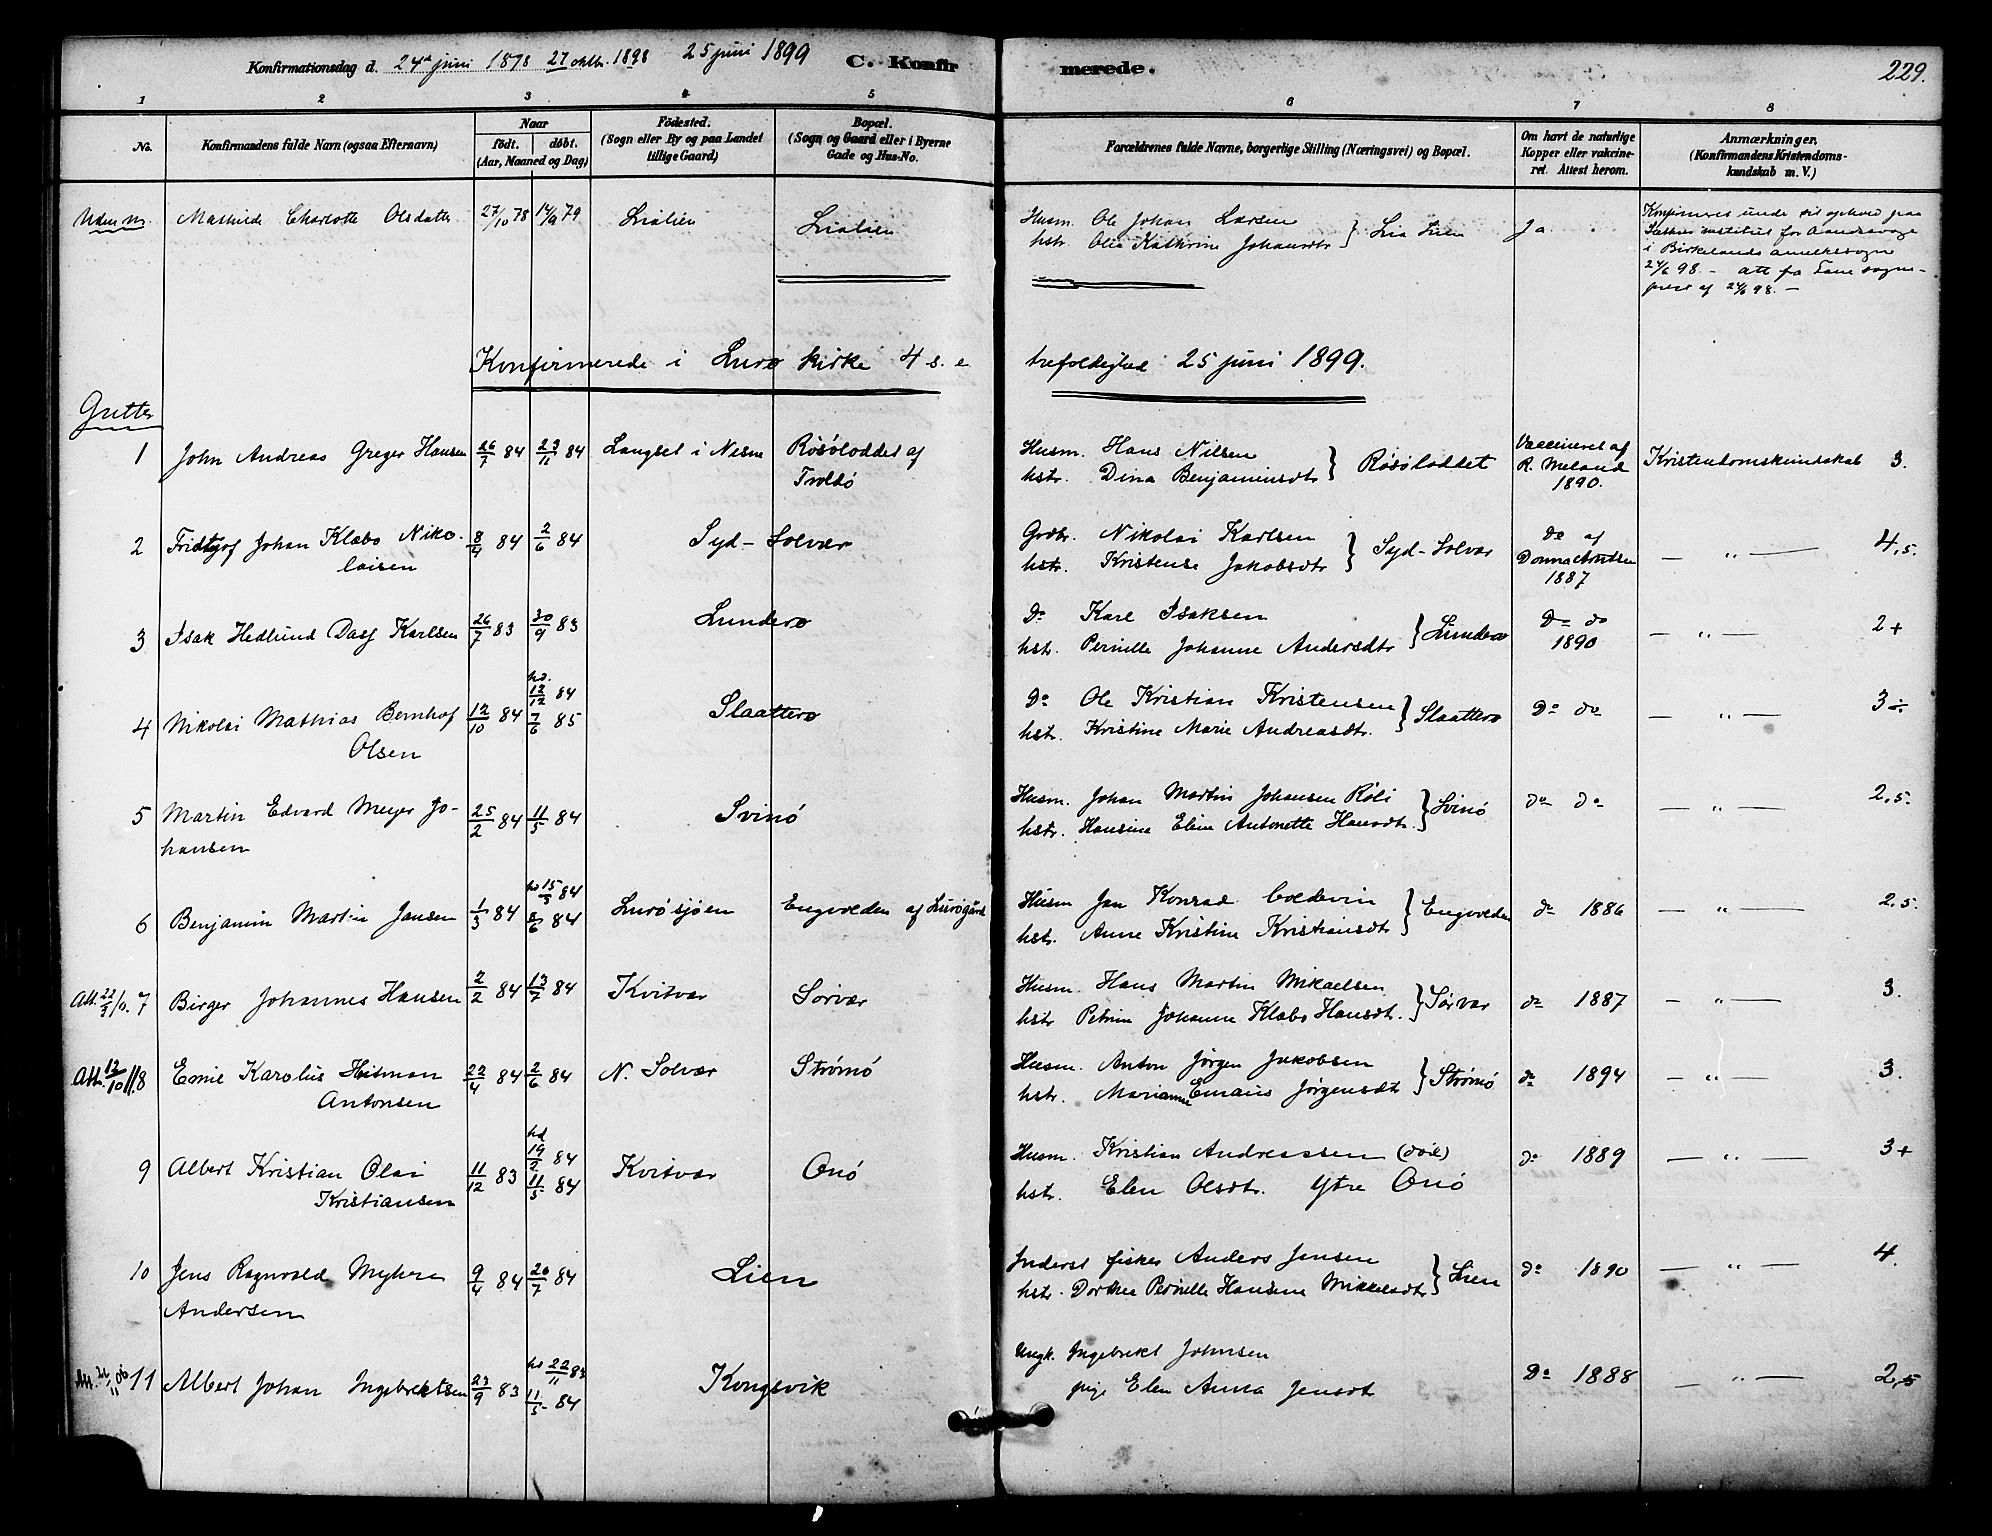 Konfirmationsdag d. 24de juni 1898 27 oktbr. 1898 25 juni 1899 C. Konfirmerede. 229.
1 2 3 4 5 6 7 8
No. Konfirmandens fulde Navn (ogsaa Efternavn) Naar født. døbt. (Aar, Maaned og Dag) Fødested. (Sogn eller By og paa Landet tillige Gaard) Bopæl. (Sogn og Gaard eller i Byerne Gade og Hus-No. Forældrenes fulde Navne, borgerlige Stilling (Næringsvei) og Bopæl. Om havt de naturlige Kopper eller vakcineret. Attest herom. Anmærkninger. (Konfirmandens Kristendomskundskab m. V.)
Mathilde Charlotte Olsdatter 27/10 78 14/9 79 Lialien Lialien Husm. Ole Johan Larsen } Lia Lien Ja
hstr. Olea Kathrine Johansdtr
Konfirmeret under sit ophold paa
institut for Aandssvage
i Birkelands annekssogn
24/6 98. – att fra Fane sogne-
prest af 24/6 98. –
Konfirmerede i Lurø kirke 4 s. e. trefoldighed 25 juni 1899.
Gutter
1 John Andreas Greger Hansen 26/7 84 23/11 84 Langset i Nesne Røsøloddet af Husm. Hans Nilsen } Røsøloddet Vaccineret af Kristendomskundskab 3.
Troldø hstr. Dina Benjaminsdtr R. Meland
1890.
2 Fridtjof Johan Klæbo Niko- 8/4 84 2/6 84 Syd-Solvær Grdbr. Nikolai Karlsen } Syd-Solvær Do af — „ — 4,5.
laisen hstr. Kristense Jakobsdtr Donna Arntsen
1887
3 Isak Hedlund Dass Karlsen 26/7 83 30/9 83 Lunderø Do Karl Isaksen } Lunderø Do do — „ — 2+
hstr. Pernille Johanne Andersdtr 1890
4 Nikolai Mathias Bernhof 12/10 84 hd. 12/12 84 Slaatterø Do Ole Kristian Kristensen } Slaatterø Do do — „ — 3÷
Olsen 7/6 85 hstr. Kristine Marie Andreasdtr.
5 Martin Edvard Meyer Jo- 25/2 84 11/5 84 Svinø Husm. Johan Martin Johansen Røli } Svinø do do — „ — 2,5.
hansen hstr. Hansine Elen Antonette Hansdtr.
6 Benjamin Martin Jansen 1/3 84 hd 15/3 84 2/6 84 Lurøsjøen Engvolden af Lurøgård Husm Jan Konrad Coldevin } Engvolden do 1886 — „ — 2,5.
hstr. Anne Kristine Kristiansdtr
Att. 22/3/10. 7 Birger Johannes Hansen 2/2 84 13/7 84 Kvitvær Sørvær Husm. Hans Martin Mikaelsen } Sørvær do 1887 — „ — 3.
hstr Petrine Johanne Klæbo Hansdt.
Att. 12/10 11 8 Emil Karolus Hitman 22/4 84 2/6 84 N. Solvær Strømø Husm. Anton Jørgen Jakobsen } Strømø do 1894 — „ — 3.
Antonsen hstr. Marianne Emaus Jørgensdt
9 Albert Kristian Olai 11/12 83 hd 19/2 84 Kvitvær Onø Husm. Kristian Andreassen (død) do 1889 — „ — 3+
Kristiansen 11/5 84 hstr. Elen Olsdtr. Ytre Onø
10 Jens Ragnvald Myhre 9/4 84 20/7 84 Lien Inderst fisker Anders Jensen } Lien do 1890 — „ — 4.
Andersen hstr. Dorthea Pernille Hansine Mikkelsdtr
11 Albert Johan Ingebrektsen 23/9 83 hd 22/11 83 Kongsvik Ungk. Ingebrekt Johnsen Do 1888 — „ — 2,5
11/5 84 pige Elen Anna Jensdt